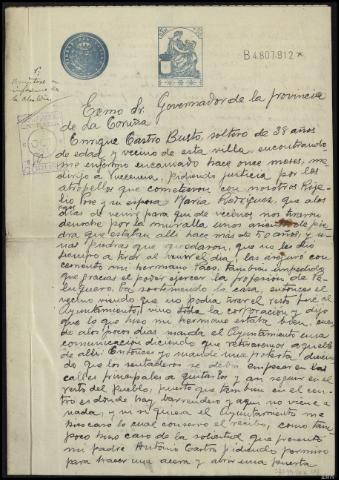 B 4.807.912 *
Excmo Sr. Governador de la provincia
de La Coruña
Enrique Castro Busto, soltero de 38 años
de edad y vecino de esta villa encontrando
me enfermo encamado hace once meses, me
dirijo a Vuecencia, pidiendo justicia por los
atropellos que cometieron con nosotros
Pose y su esposa Maria Rodriguez, que a los
dias de venir para qui de vecinos nos tiraron
denoche por la muralla unos de pie
dra que estaban alli hace mas de 50 años, y u
nas piedras que quedaron, que no les dio
tiempo a tirar al venir el dia, las
mi hermano Paco, tambien impedido
que gracias al poder ejercer la profesion de
va sosteniendo la casa, entonces el
vecino viendo que no podia tirar el resto fue al
Ayuntamiento, vino toda la corporacion y dijo
que lo que hizo mi hermano estaba bien, cuan
do a los pocos dias manda el Ayuntamiento una
comunicacion diciendo que retiraramos aquello
de alli. Entonces yo mande una protesta, dicien
do que los sentaderos se debia empezar en las
calles principales a quitarlos y asi seguir en el
resto del pueblo, puesto que tambien en el cen
tro es donde hay barrendero y aqui no viene a
nada, y ni siquiera el Ayuntamiento me
hizo caso lo cual conservo el recibo, como tam
poco hizo caso de la solicitud que presento
mi padre Antonio Castro pidiendo permiso
para hacer una acera y abrir una puerta